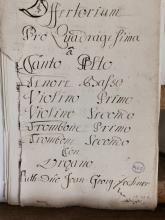 Offertorium
Pro Quadragesima
à
Canto Alto
Tenore Basso
Violino Primo
Violino Secondo
Trombone Primo
Trombone Secondo
Con
Organo
Auth: Dno Joan Georg Zechner